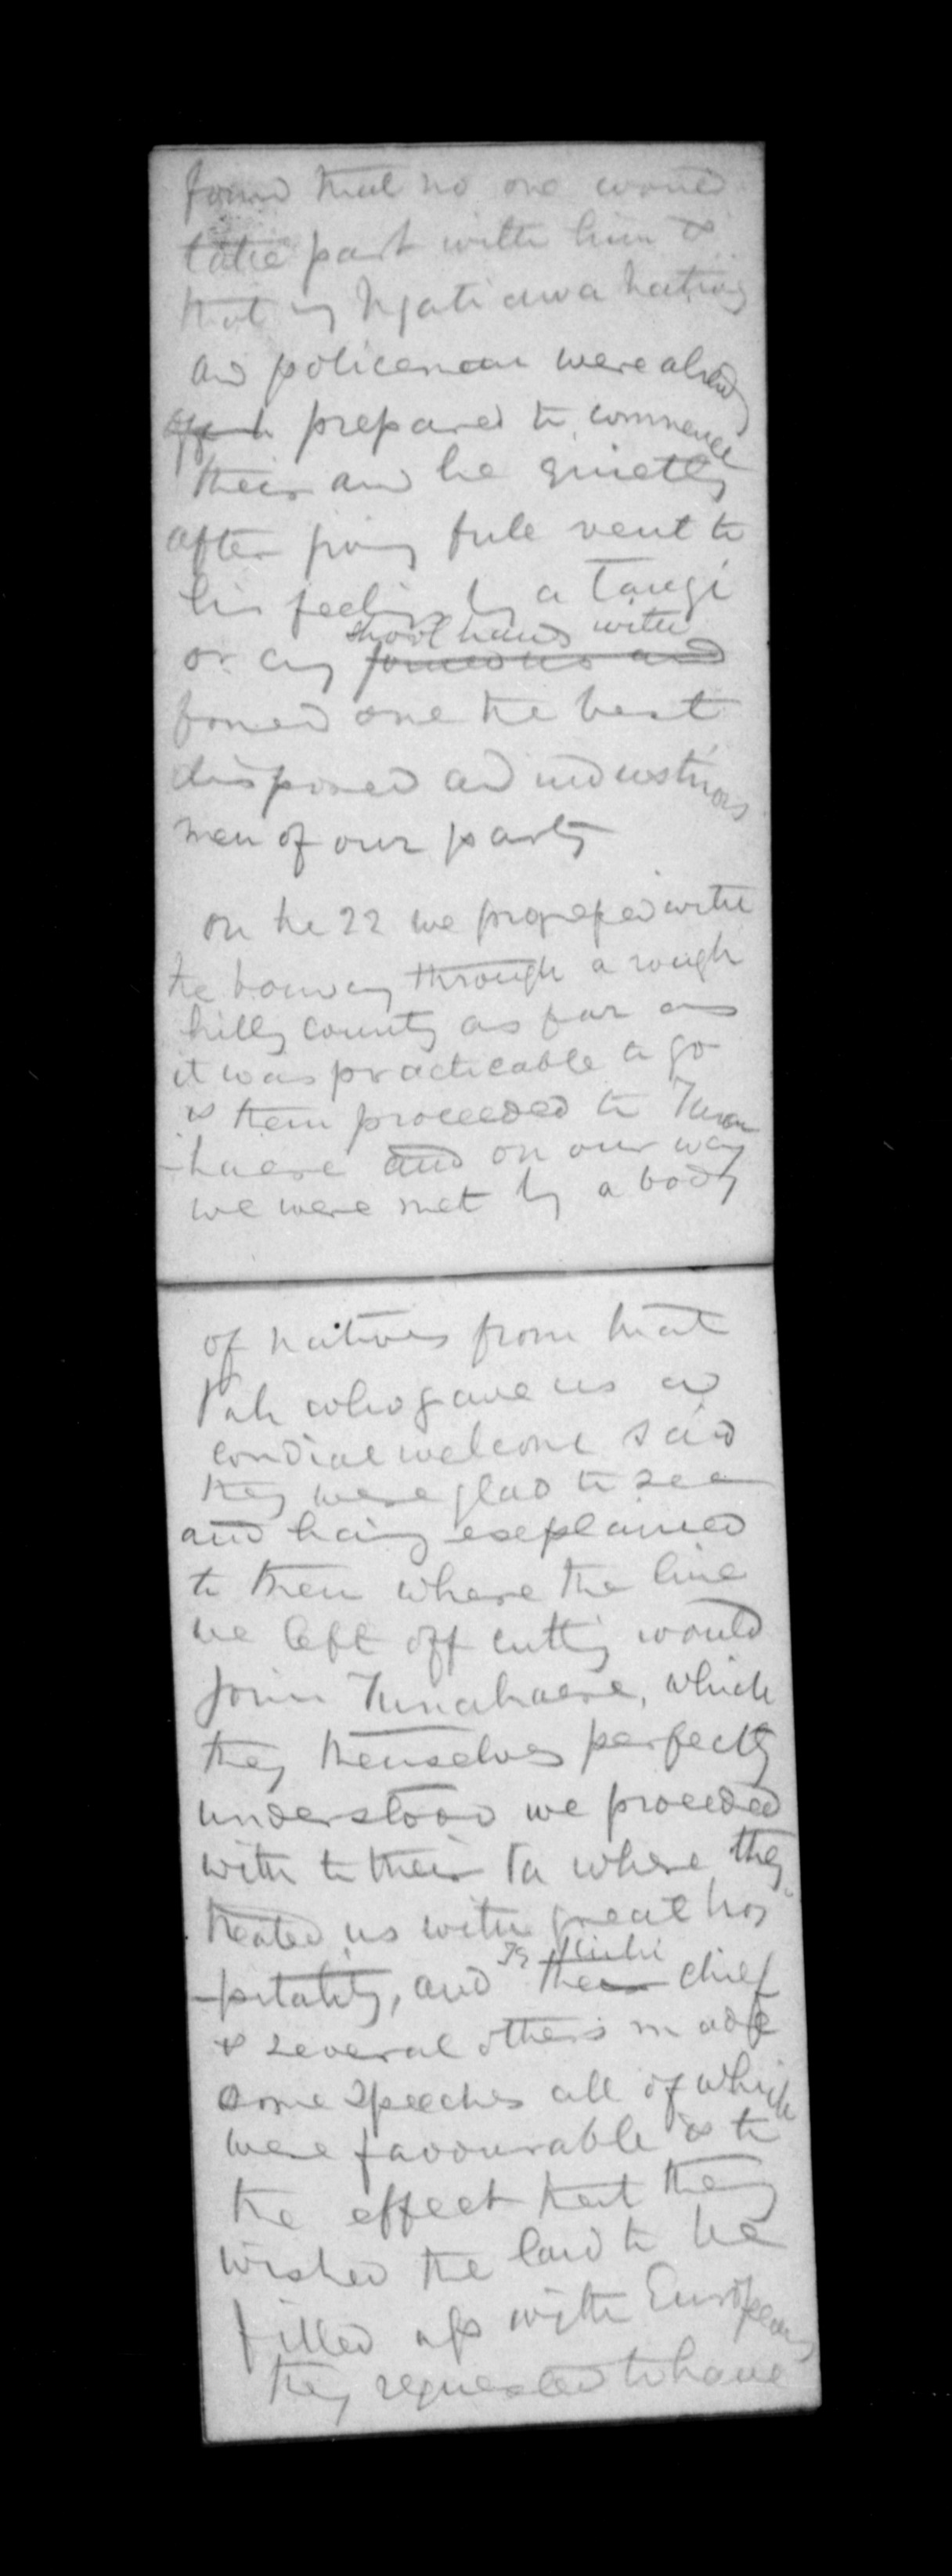 found that no one would
take part with him &
that my Ngatiawa natives
and policeman were already
prepared to commence
their and he quietly
after giving full vent to
his feelings by a Tangi
or cry shook hands with
joined us and
formed one the best
disposed and industrious
men of our party
On the 22 we progressed with
the boundary through a rough
hilly country as far as
it was practicable to go
& then proceeded to Tuna
-haere and on our way
we were met by a body
of natives from that
Pah who gave us a
cordial welcome said
they were glad to see
and having explained
to them where the line
we left off cutting would
join Tunahaere, which
they themselves perfectly
understood we proceeded
with to their Pa where they
treated us with great hos
-pitality, and their chief
& several others made
some speeches all of which
were favourable & to
the effect that they
wished the land to be
filled up with Europeans
they requested to have